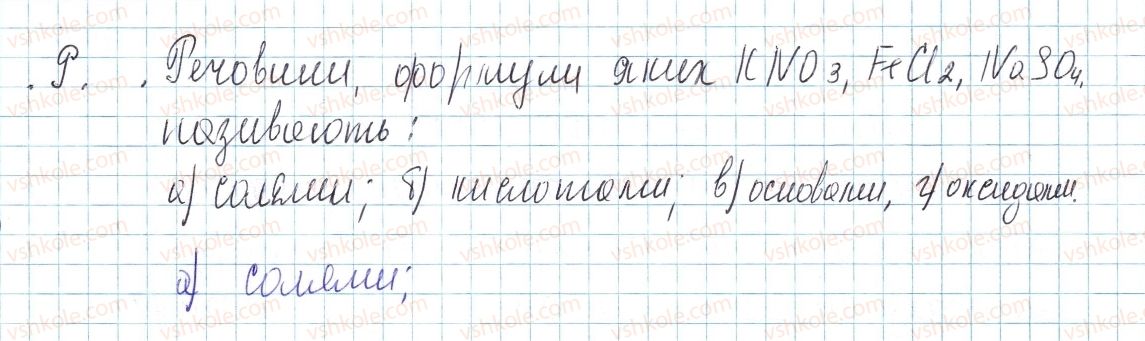 Р. . Речовини, формули яких KNO3, FeCl2, NaSO4,
називають:
а) солями; б) кислотами; в) основами, г) оксидами.
а) солями;